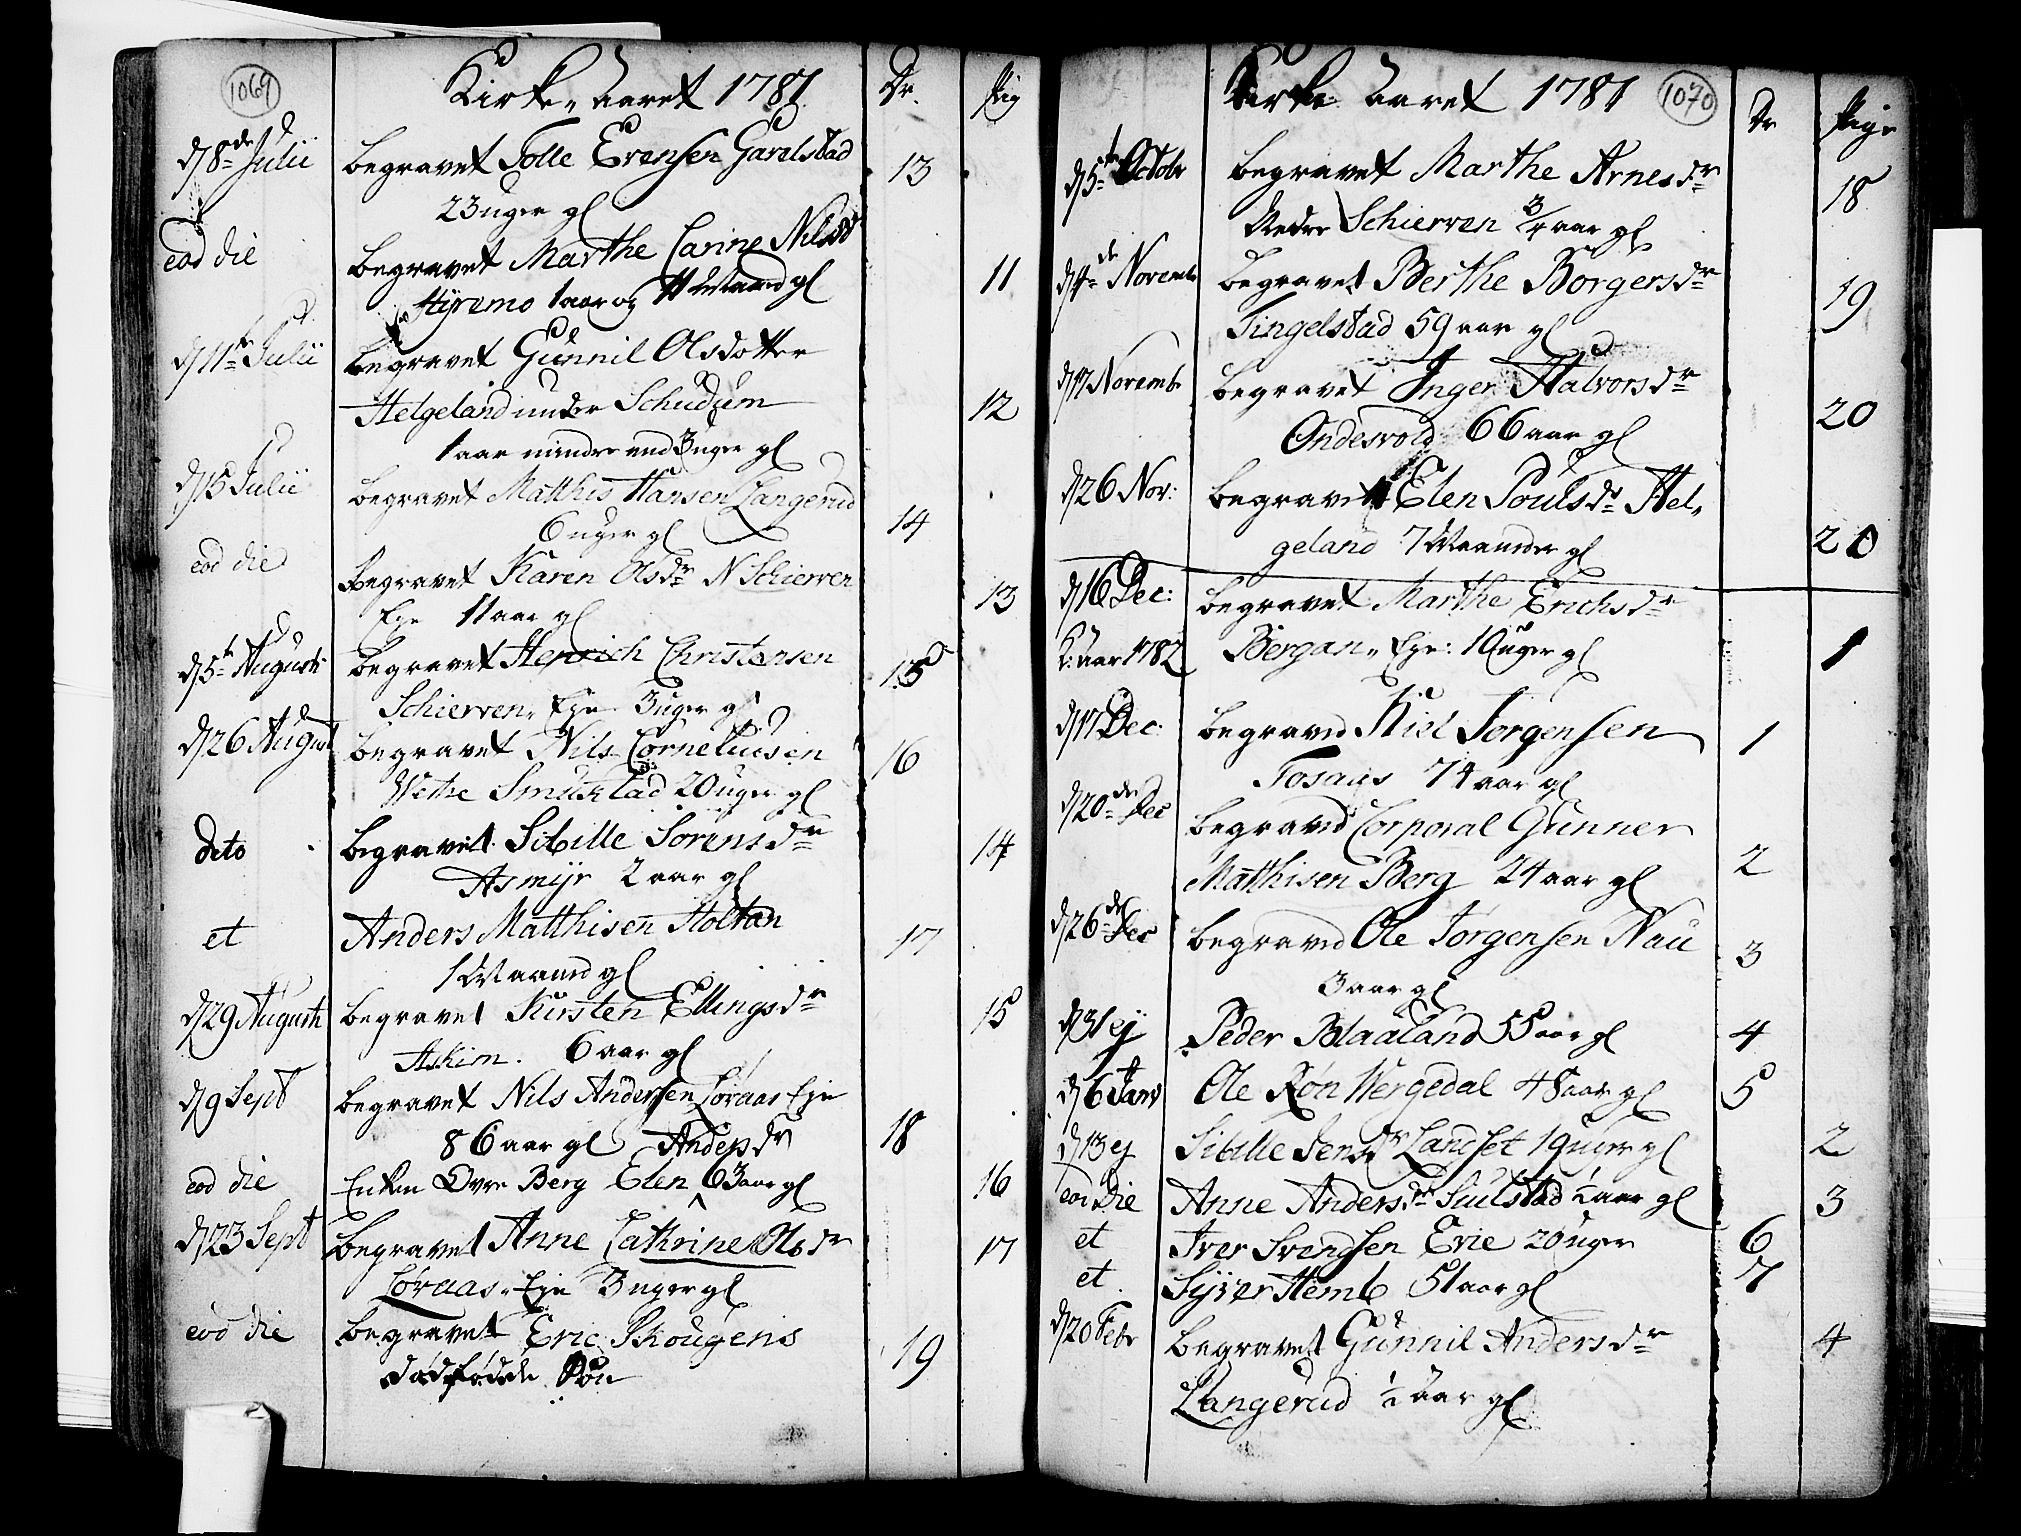 1069
Kirke-Aaret 1781
Dr.
Pig
d/8de Julii
begravet Tolle Evensen Garelstad
13
23 uger gl
eod die
begravet Marthe Carine Nilsd
11
Hyremo 1 aar og 11 Maand gl
d/11te Julii
begravet Gunnil Olsdotter
Helgeland under Schudum
12
1 aar mindre end 3 uger gl
d/15 Julii
begravet Matthis Hansen Langerud
14
6 uger gl
eod die
Begravet Karen Olsdr N Schierven
13
Eje 11 aar gl
d/5te Augusti
begravet Henrich Christensen
15
Schierven Eje 3 uger gl
d/26 August
begravet Nils Corneliusen
16
Wethe Smukstad 20 uger gl
deto
begravet Sibille Sørensdr
14
Asmyr 2 aar gl
et
Anders Matthisen Holtan
17
1 Maaned gl
d/29 Augusti
begravet Kirsten Ellingsdr
15
Askim. 6 aar gl
d/9 Sept
begravet Nils Andersen Løraas Eje
18
86 aar gl Andersdr
eod die
Enken Øvre Berg Elen 63 aar gl
16
d/23 Sept
begravet Anne Cathrine Olsdr
17
Løraas-Eje 3 uger gl
eod die
begravet Eric Skougens
19
dødfødde Søn
Kirke Aaret 1781
1070
Dr
Pige
d/5te Octobr
begravet Marthe Arnesdr
18
Nedre Schierven 3/4 aar gl
d/4de Novemb
begravet Berthe Borgersdr
19
Tingelstad 59 aar gl
d/17 Novemb
begravet Inger Halvorsdr
20
Ondesvold 66 aar gl
d/26 Nov:
begravet Elen Poulsdr Hel-
geland 7 Maaneder gl
21
d/16 Dec:
begravet Marthe Erichsdr
K: aar 1782
Bergan-Eje: 10 uger gl
1
d/17 Dec:
begraved Niel Jørgensen
1
Tosaus 74 aar gl
d/20de Dec
begraved Corporal Gunner
2
Matthisen Berg 24 aar gl
d/26de Dec
begraved Ole Jørgensen Nau
3
3 aar gl
d/31 ej
Peder Blaaland 55 aar gl
4
d/6 Janv
Ole Røn Wergedal 48 aar gl
5
d/13 ej
Sibille Jensdr Landset 19 uger gl
2
eod die
Anne Andersdr Siulstad 1/2 aar gl
3
et
Iver Svendsen Evie 20 uger
6
et
Syver Hemb 51 aar gl
7
d/20 Febr
begravet Gunnil Andersdr
4
Langerud 1/2 aar gl